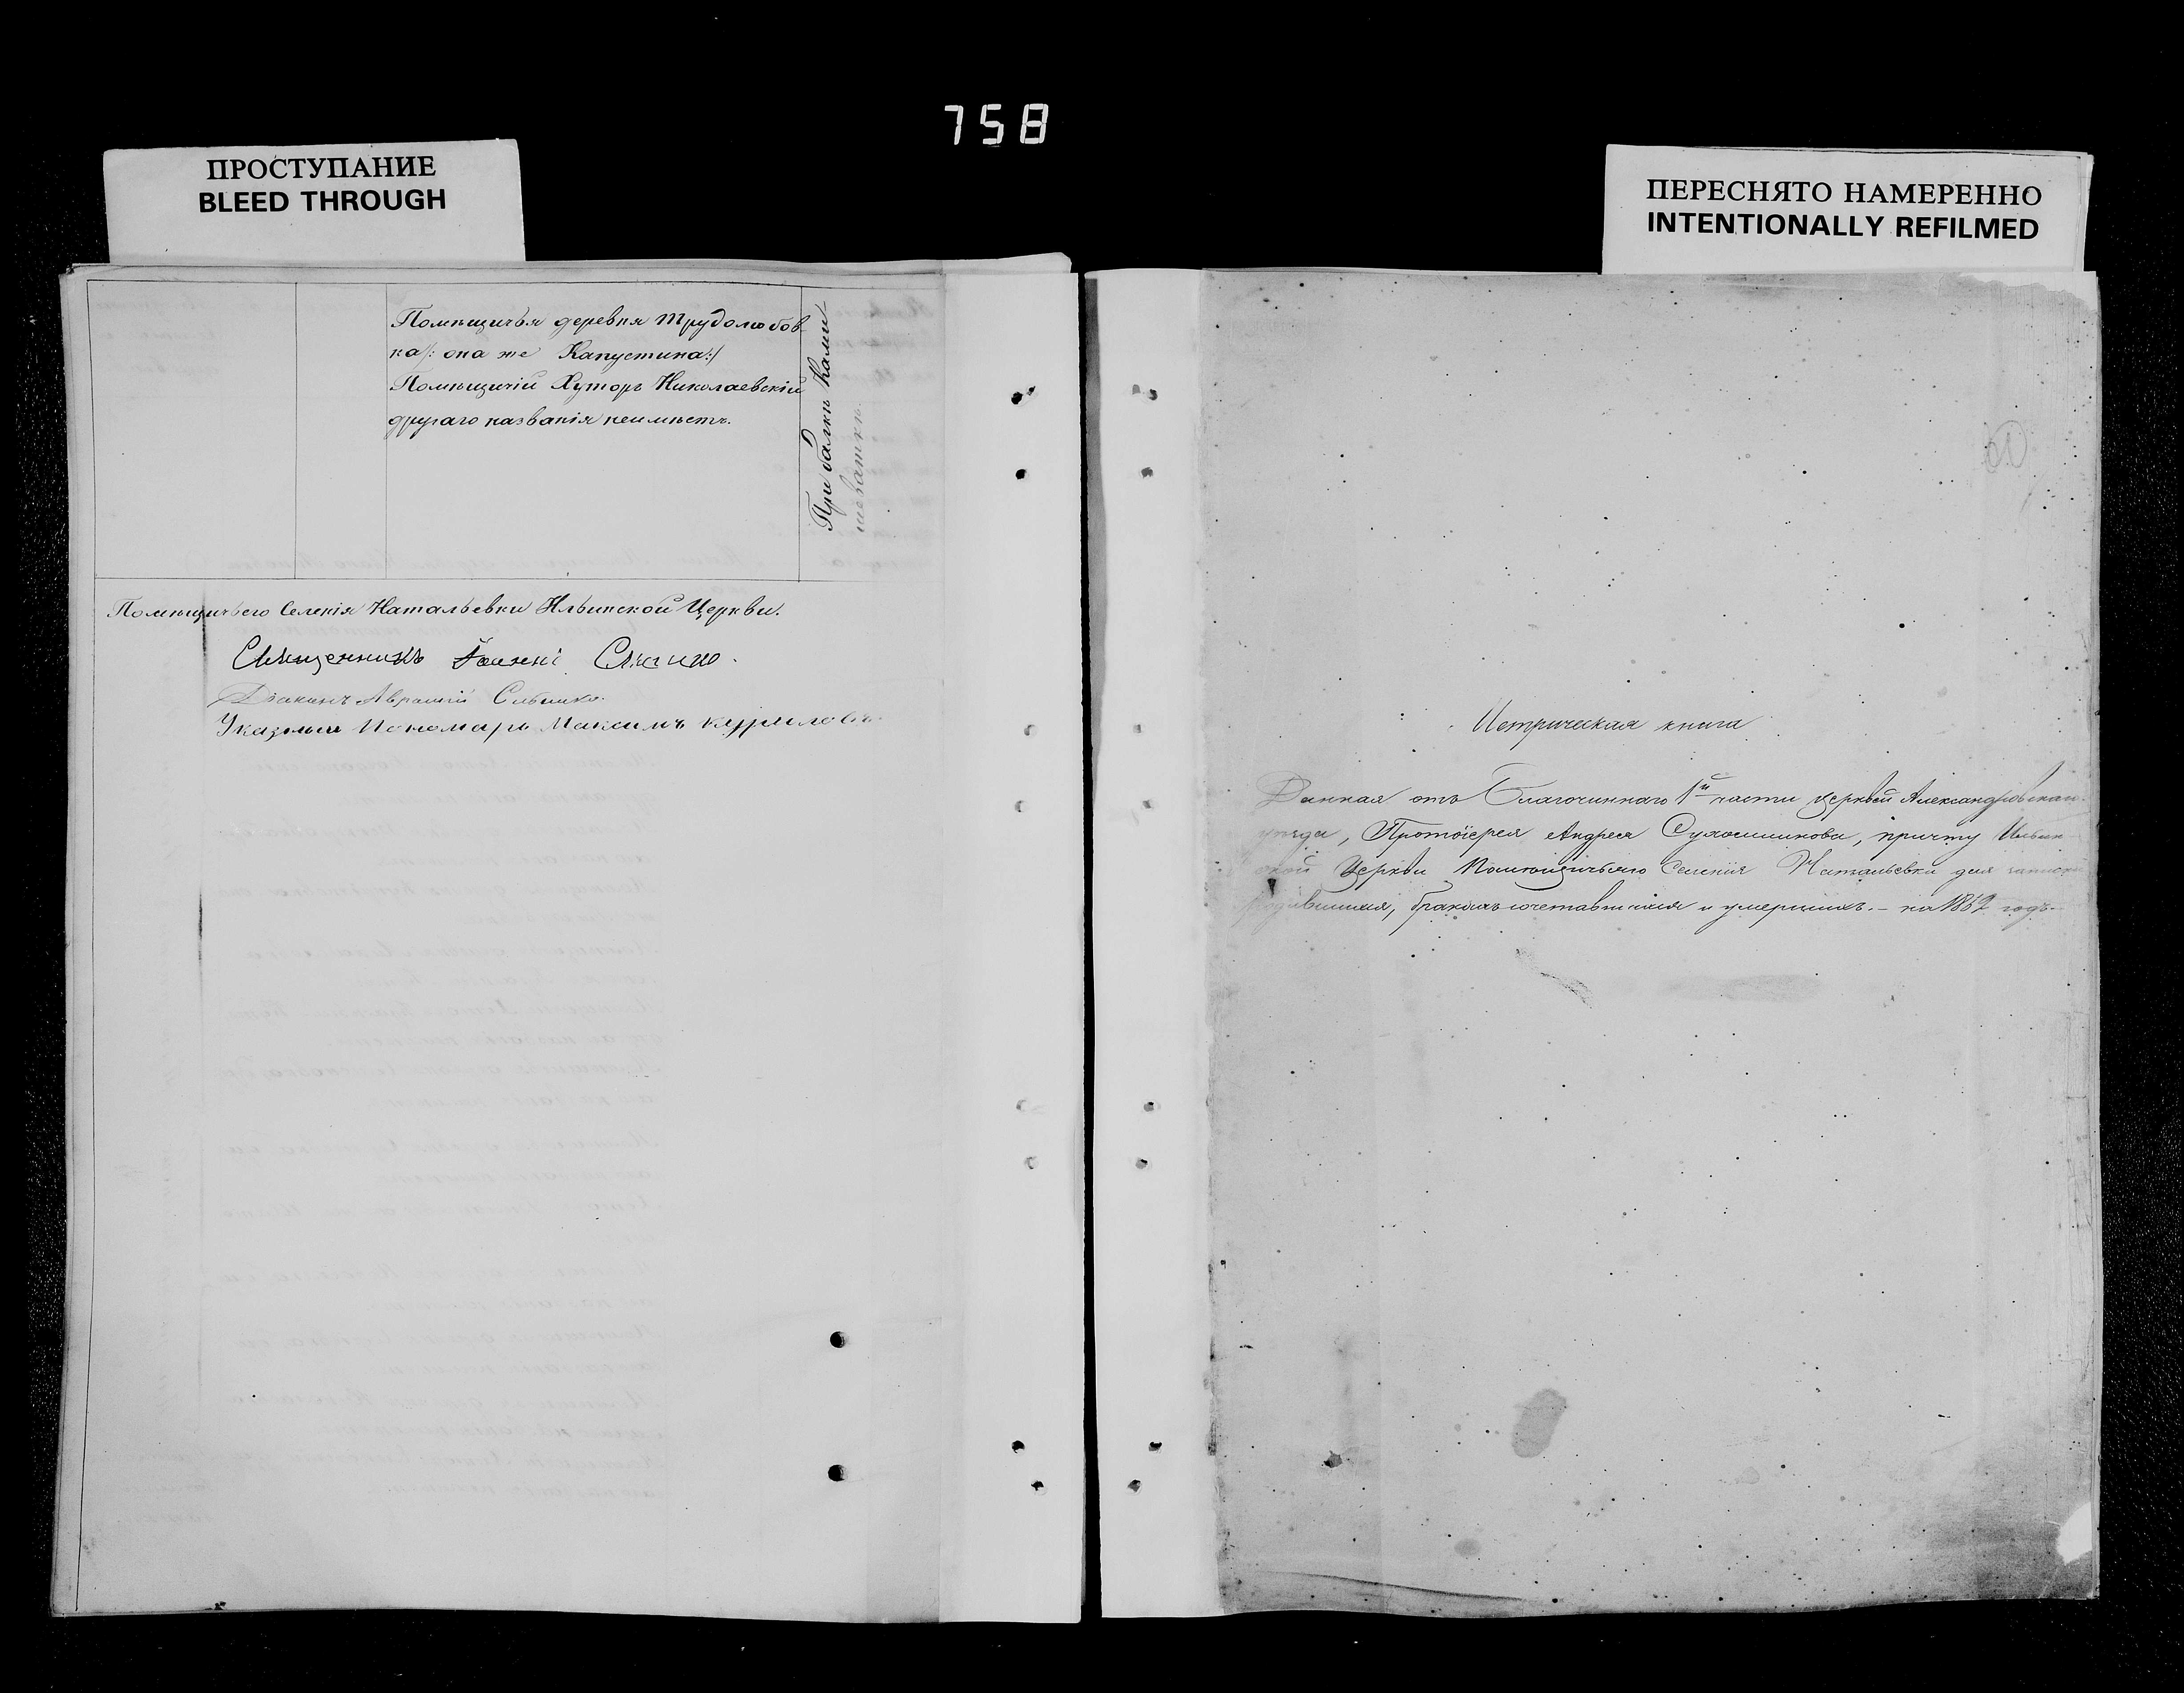 758
ПРОСТУПАНИЕ
BLEED THROUGH
ПЕРЕСНЯТО НАМЕРЕННО
INTENTIONALLY REFILMED
Помѣщичья деревня Трудолюбов-
ка /: она же Капустина :/
Помѣщичій Хуторъ Николаевскій
другаго названія неимѣетъ.
При балкѣ Камы
шеваткѣ.
Помѣщичьего Селенія Натальевки Ильинской Церкви.
Священникъ Іоаннъ
Діаконъ Аврамій
Указный Пономарь Максимъ
Метрическая книга
Данная отъ Благочиннаго 1й части церквей Александровскаго
уѣзда, Протоіерея Андрея, причту Ильин
ской Церкви Помѣщичьяго Селенія Натальевки для записи
родившихся, бракомъ сочетавшихся и умершихъ. – на 1862 годъ.